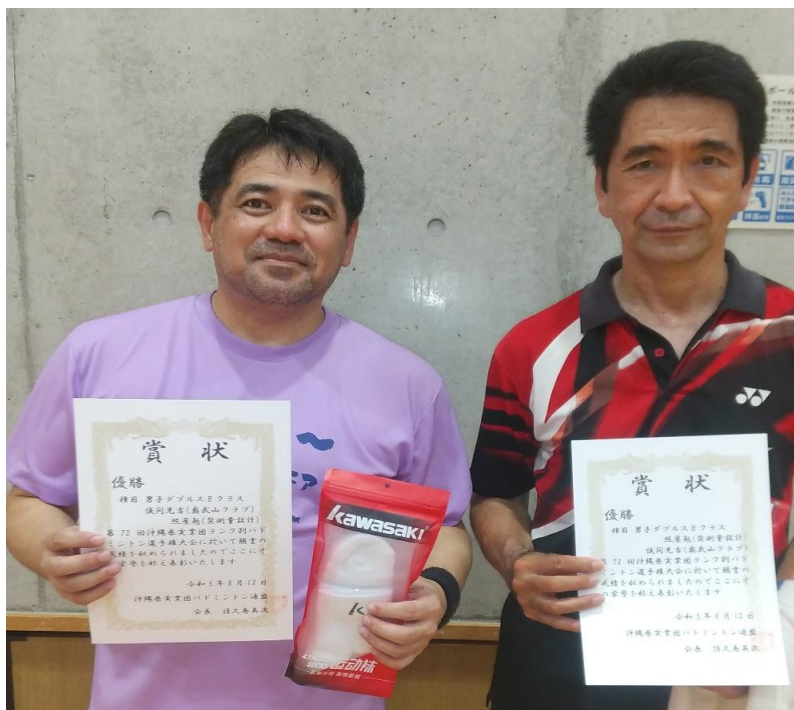 賞状
優勝
種目 男子ダブルスBクラス
儀間光吉(奥武山クラブ)
照屋勉(榮測量設計)
第72回沖縄県実業団ランク別バド
ミントン選手権大会に於いて頭書の
成績を収められましたのでここにそ
の栄誉を称え表彰いたします
令和5年8月12日
沖縄県実業団バドミントン連盟
会長
kawasaki
运动袜
賞状
優勝
種目 男子ダブルスBクラス
照屋勉(榮測量設計)
儀間光吉(奥武山クラブ)
第72回沖縄県実業団ランク別バド
ミントン選手権大会に於いて頭書の
成績を収められましたのでここにそ
の栄誉を称え表彰いたします
令和5年8月12日
沖縄県実業団バドミントン連盟
会長